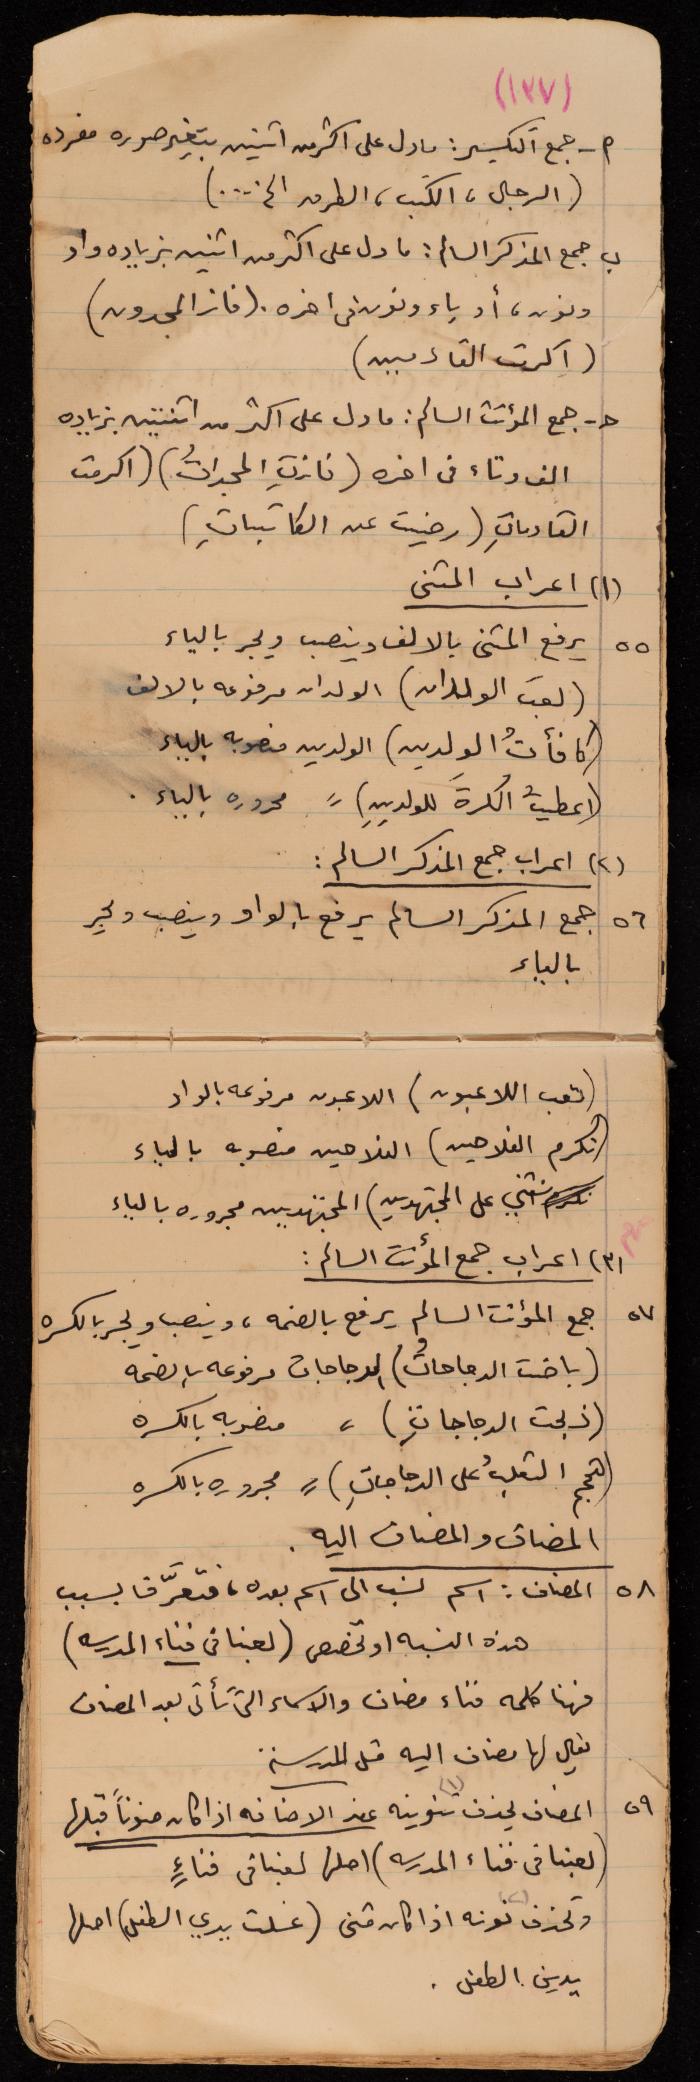 (١٣٧)
م- جمع التكسير: مادل على اكثر من اثنين بتغير صوره مفرده
(الرجال، الكتب، الطرق الخ....)
ب جمع المذكر السالم: مادل على اكثر من اثنين بزياده واو
ونون، أو ياء ونون فى اخره. (فاز المجدون)
(اكرمت القادمين)
حـ- جمع المؤنث السالم: مادل على اكثر من اثنتين بزياده
الف وتاء فى اخره (فازتِ المجداتُ) (اكرمت
القادماتِ (رضيت عن الكاتباتِ)
(١) اعراب المثنى
٥٥ يرفع المثنى بالالف وينصب ويجر بالياء
(لعبَ الولدان) الولدان مرفوعه بالالف
(كافأتُ الولدين) الولدين منصوبه بالياء
(اعطيتُ الكرةَ للولدينِ) = مجروره بالياء .
(٢) اعراب جمع المذكر السالم :
٥٦ جمع المذكر السالم يرفع بالواو وينصب ويجر
بالياء
(تعب اللاعبون) اللاعبون مرفوعه بالواو
(نُكرم الفلاحين) الفلاحين منصوبه بالياء
نثني على المجتهدين) المجتهدين مجروره بالياء
(٣) اعراب جمع المؤنث السالم :
٥٧ جمع المؤنث السالم يرفع بالضمه، وينصب ويجر بالكسره
(باضت الدجاجاتُ) الدجاجات مرفوعه بالضمه
(ذبحت الدجاجاتِ) ، منصوبه بالكسره
(هجم الثعلبُ على الدجاجاتِ) = مجروره بالكسره
المضاف والمضاف اليه .
٥٨ المضاف : اسم نسب الى اسم بعده، فتعرَّف بسبب
هذه النسبه او تخصص (لعبنا فى فناء المدرسه)
فهنا كلمه فناء مضاف والاسماء التى تأتى بعد المضاف
يقال لها مضاف اليه مثل المدرسة
٥٩ المضاف يحذف تنوينه (١) عند الاضافه اذا كان منوناً قبلها
(لعبنا فى فناء المدرسه) اصلها لعبنا فى فناءٍ
وتحذف نونه (٢) اذا كان مثنى (غسلت يدي الطفل) اصلها
يدين الطفل .